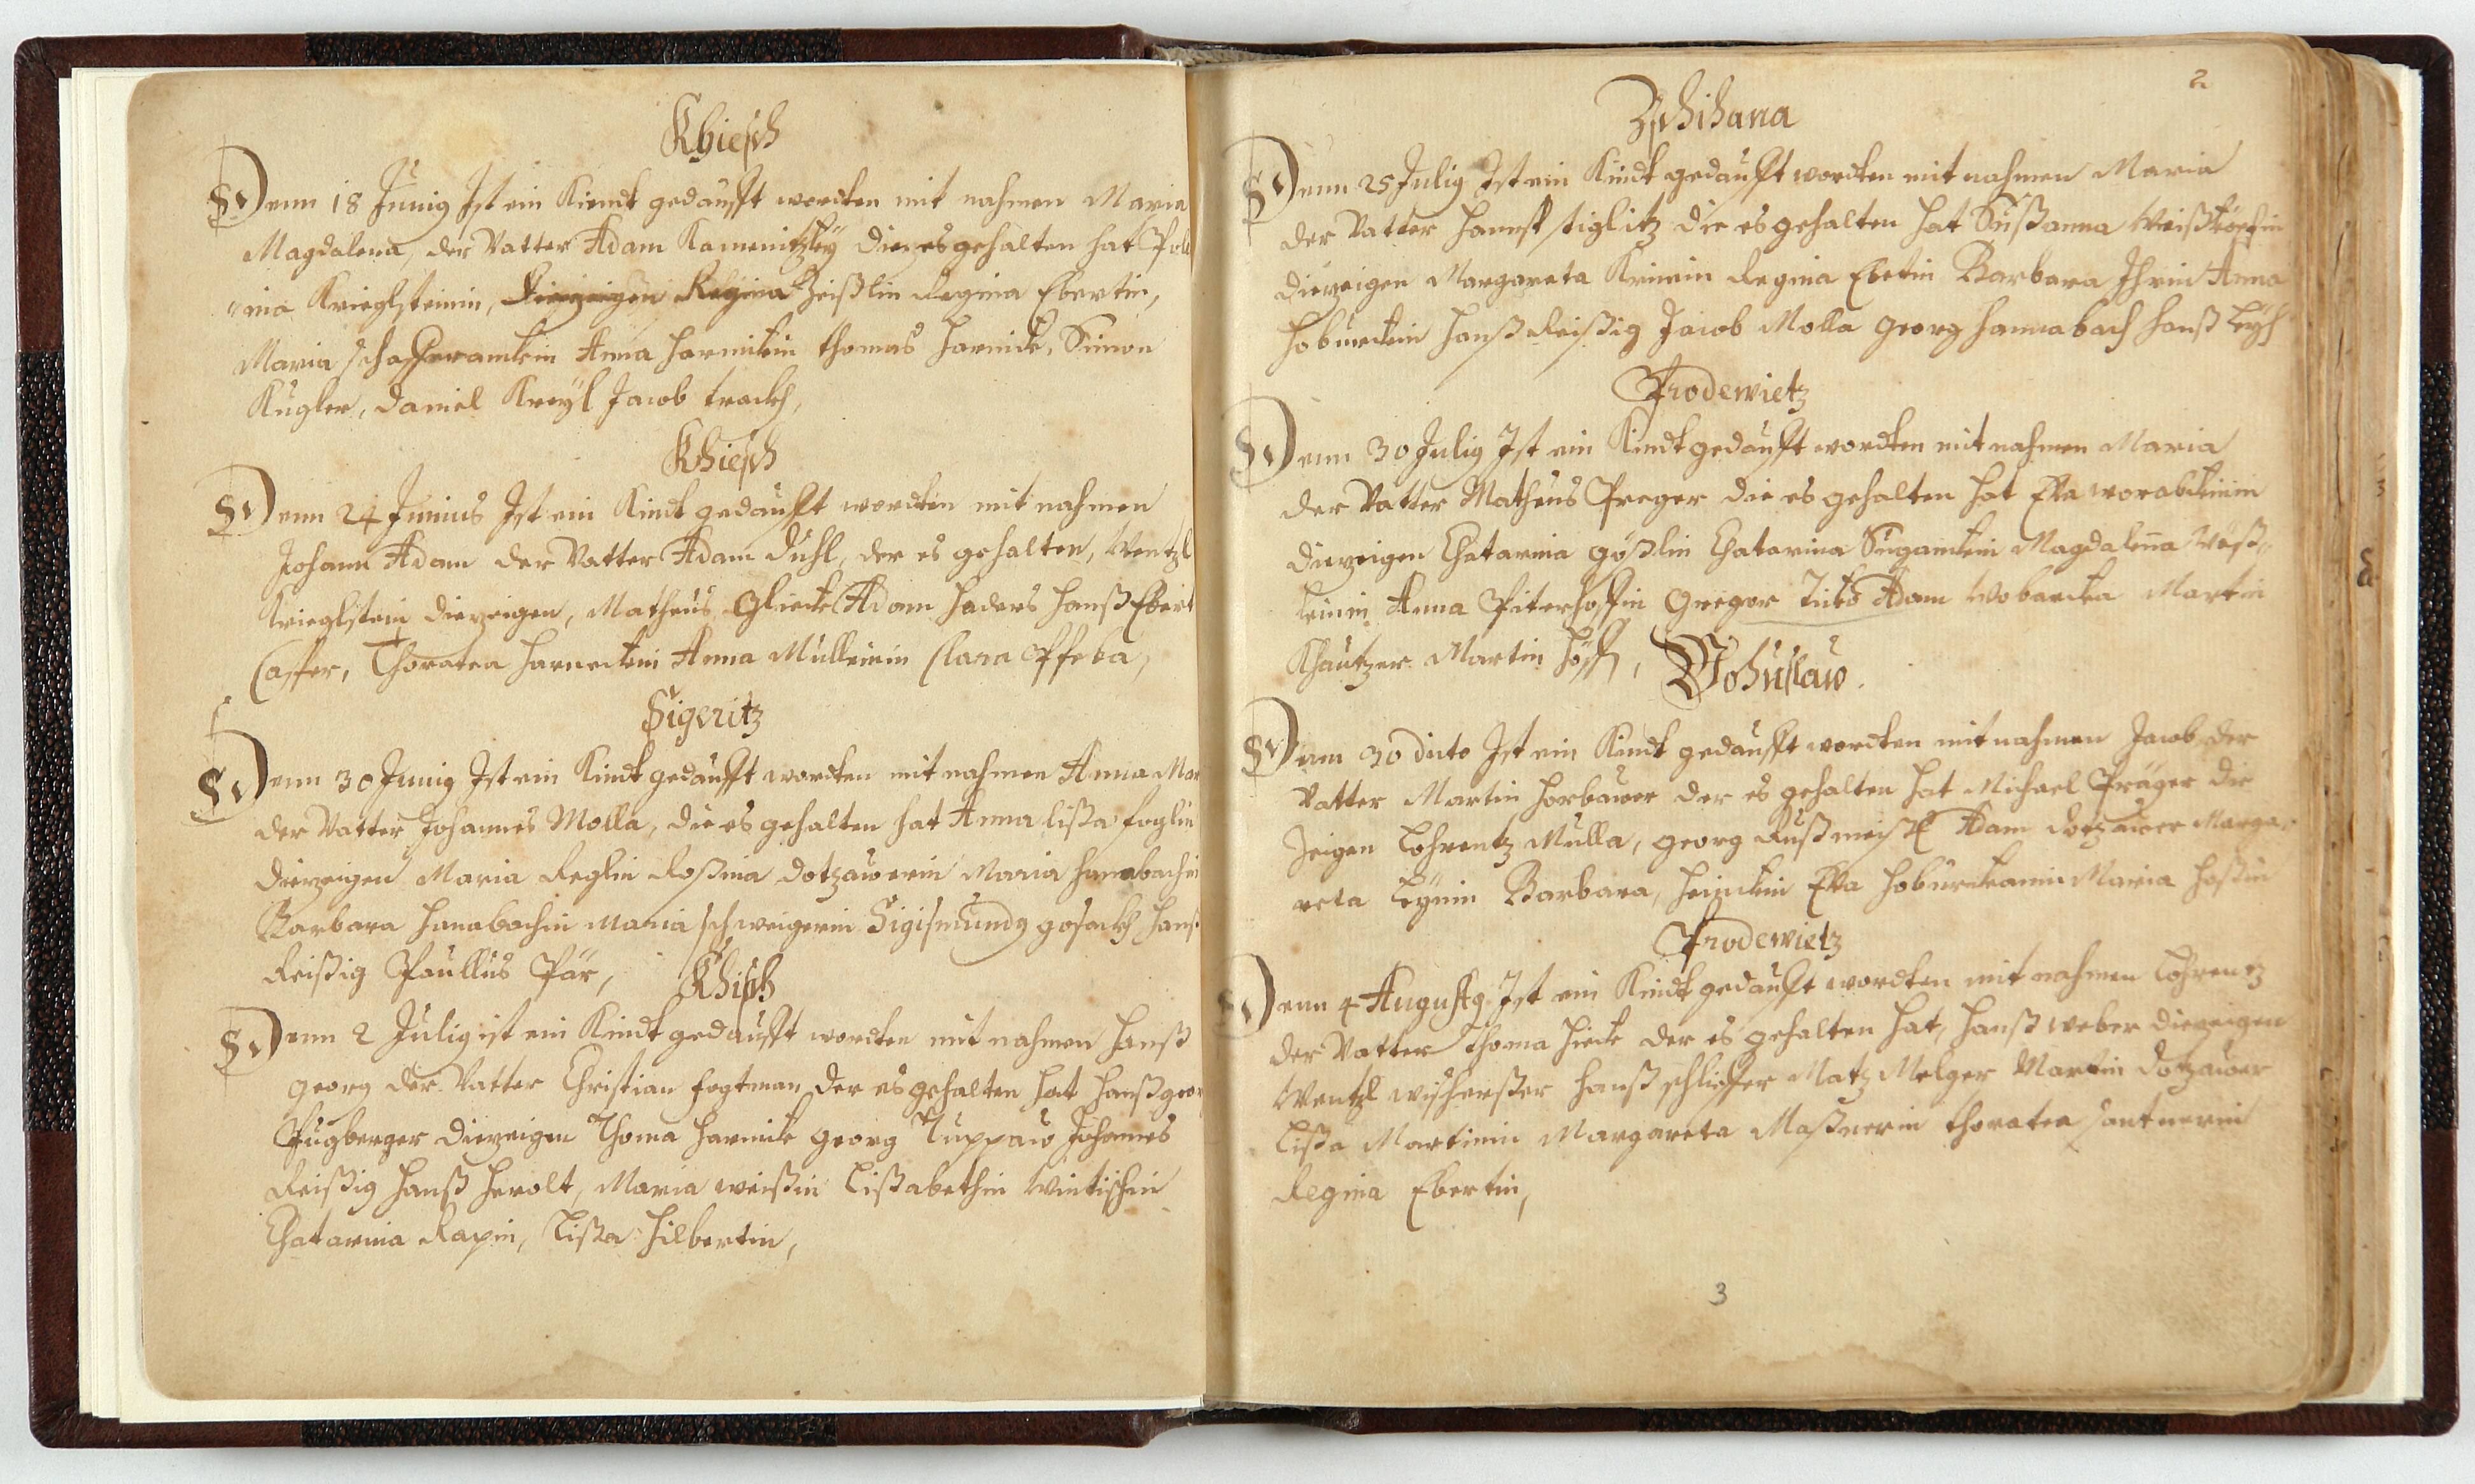 Khiesch
Denn 18 Junig Ist ein Kiendt gedaufft wordten mit nahmen Maria
Magdalena, der Vatter Adam Kamenitzkÿ die es gehalten hat
Krieglsteinin, Zeißlin Regina Ebertin,
Maria Anna Harnikin thomas Harnick, Simon
Kugler, Daniel Kreÿl Jacob
Khiesch
Denn 24 Junius Ist ein Kindt gedaufft wordten mit nahmen
Johann Adam der Vatter Adam Duhl, der es gehalten, Wentzl
Krieglstein die zeigen, Matheus Gliecke Adam Haders Hanß Ebert
Casper, Thoratea Harnecktein Anna Mullerinin Clara
Sigeritz
Denn 30 Junig Ist ein Kindt gedaufft wordten mit nahmen Anna Mar
der Vatter Johannes Molla, die es gehalten hat Anna lißa foglin
die zeigen Maria Reglin Roßina Dotzauerin Maria Hanabachin
Barbara Hanabachin Maria schweigerin Sigismundg Hanß
Reißig Paullus Pär,
Khisch
Denn 2 Julig ist ein Kindt gedaufft wordten mit nahmen Hanß
Georg der Vatter Christian fogtman der es gehalten hat Hanß geor
Pugberger die zeigen Thoma Harnick Georg Tuppaw Johannes
Reißig Hanß Herolt, Maria weißin Lißabethin Wintischin
Chatarina Rapin, Lißa Hilbertin,
2
Zschihana
Denn 25 Julig Ist ein Kindt gedaufft wordten mit nahmen Maria
der Vatter Hannß stiglitz die es gehalten hat Sußanna Weißköpfin
die zeigen Margareta Krinin Regina Ebetin Barbara Anna
Hoburcktin Hanß Reißig Jacob Molla Georg Hannabach Hanß
Prodewietz
Denn 30 Julig Ist ein Kindt gedaufft wordten mit nahmen Maria
der Vatter Matheus Preger die es gehalten hat Eva
die zeigen Chatarina gößlin Chatarina Magdalena
Anna Peterhoffin Gregor Adam Wobarcka Martin
Khautzer Martin
Bohuslaw.
Denn 30 dito Ist ein Kindt gedaufft wordten mit nahmen Jacob der
Vatter Martin Horbawer der es gehalten hat Michael Präger die
zeigen Lohrentz Mulla, Georg Rußmeistl Adam Dotzawer Marga
reta Barbara, Eva Maria Hoßin
Prodewietz
Denn 4 Augustg Ist ein Kindt gedaufft wordten mit nahmen Lohrentz
der Vatter Thoma Hieck der es gehalten hat, Hanß Weber die zeigen
Wentzl Hanß schlicher Matz Melzer Martin Dotzawer
Lißa Martinin Margareta Maßnerin thoratea santnerin
Regina Ebertin,
3